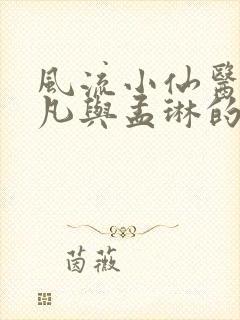 風流小仙醫
凡與孟琳的
茵薇